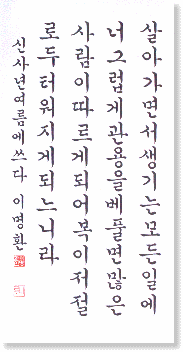 살아가면서생기는모든일에
너그럽게관용을베풀면많은
사람이따르게되어복이저절
로두터워지게되느니라
신사년여름에쓰다 이명환